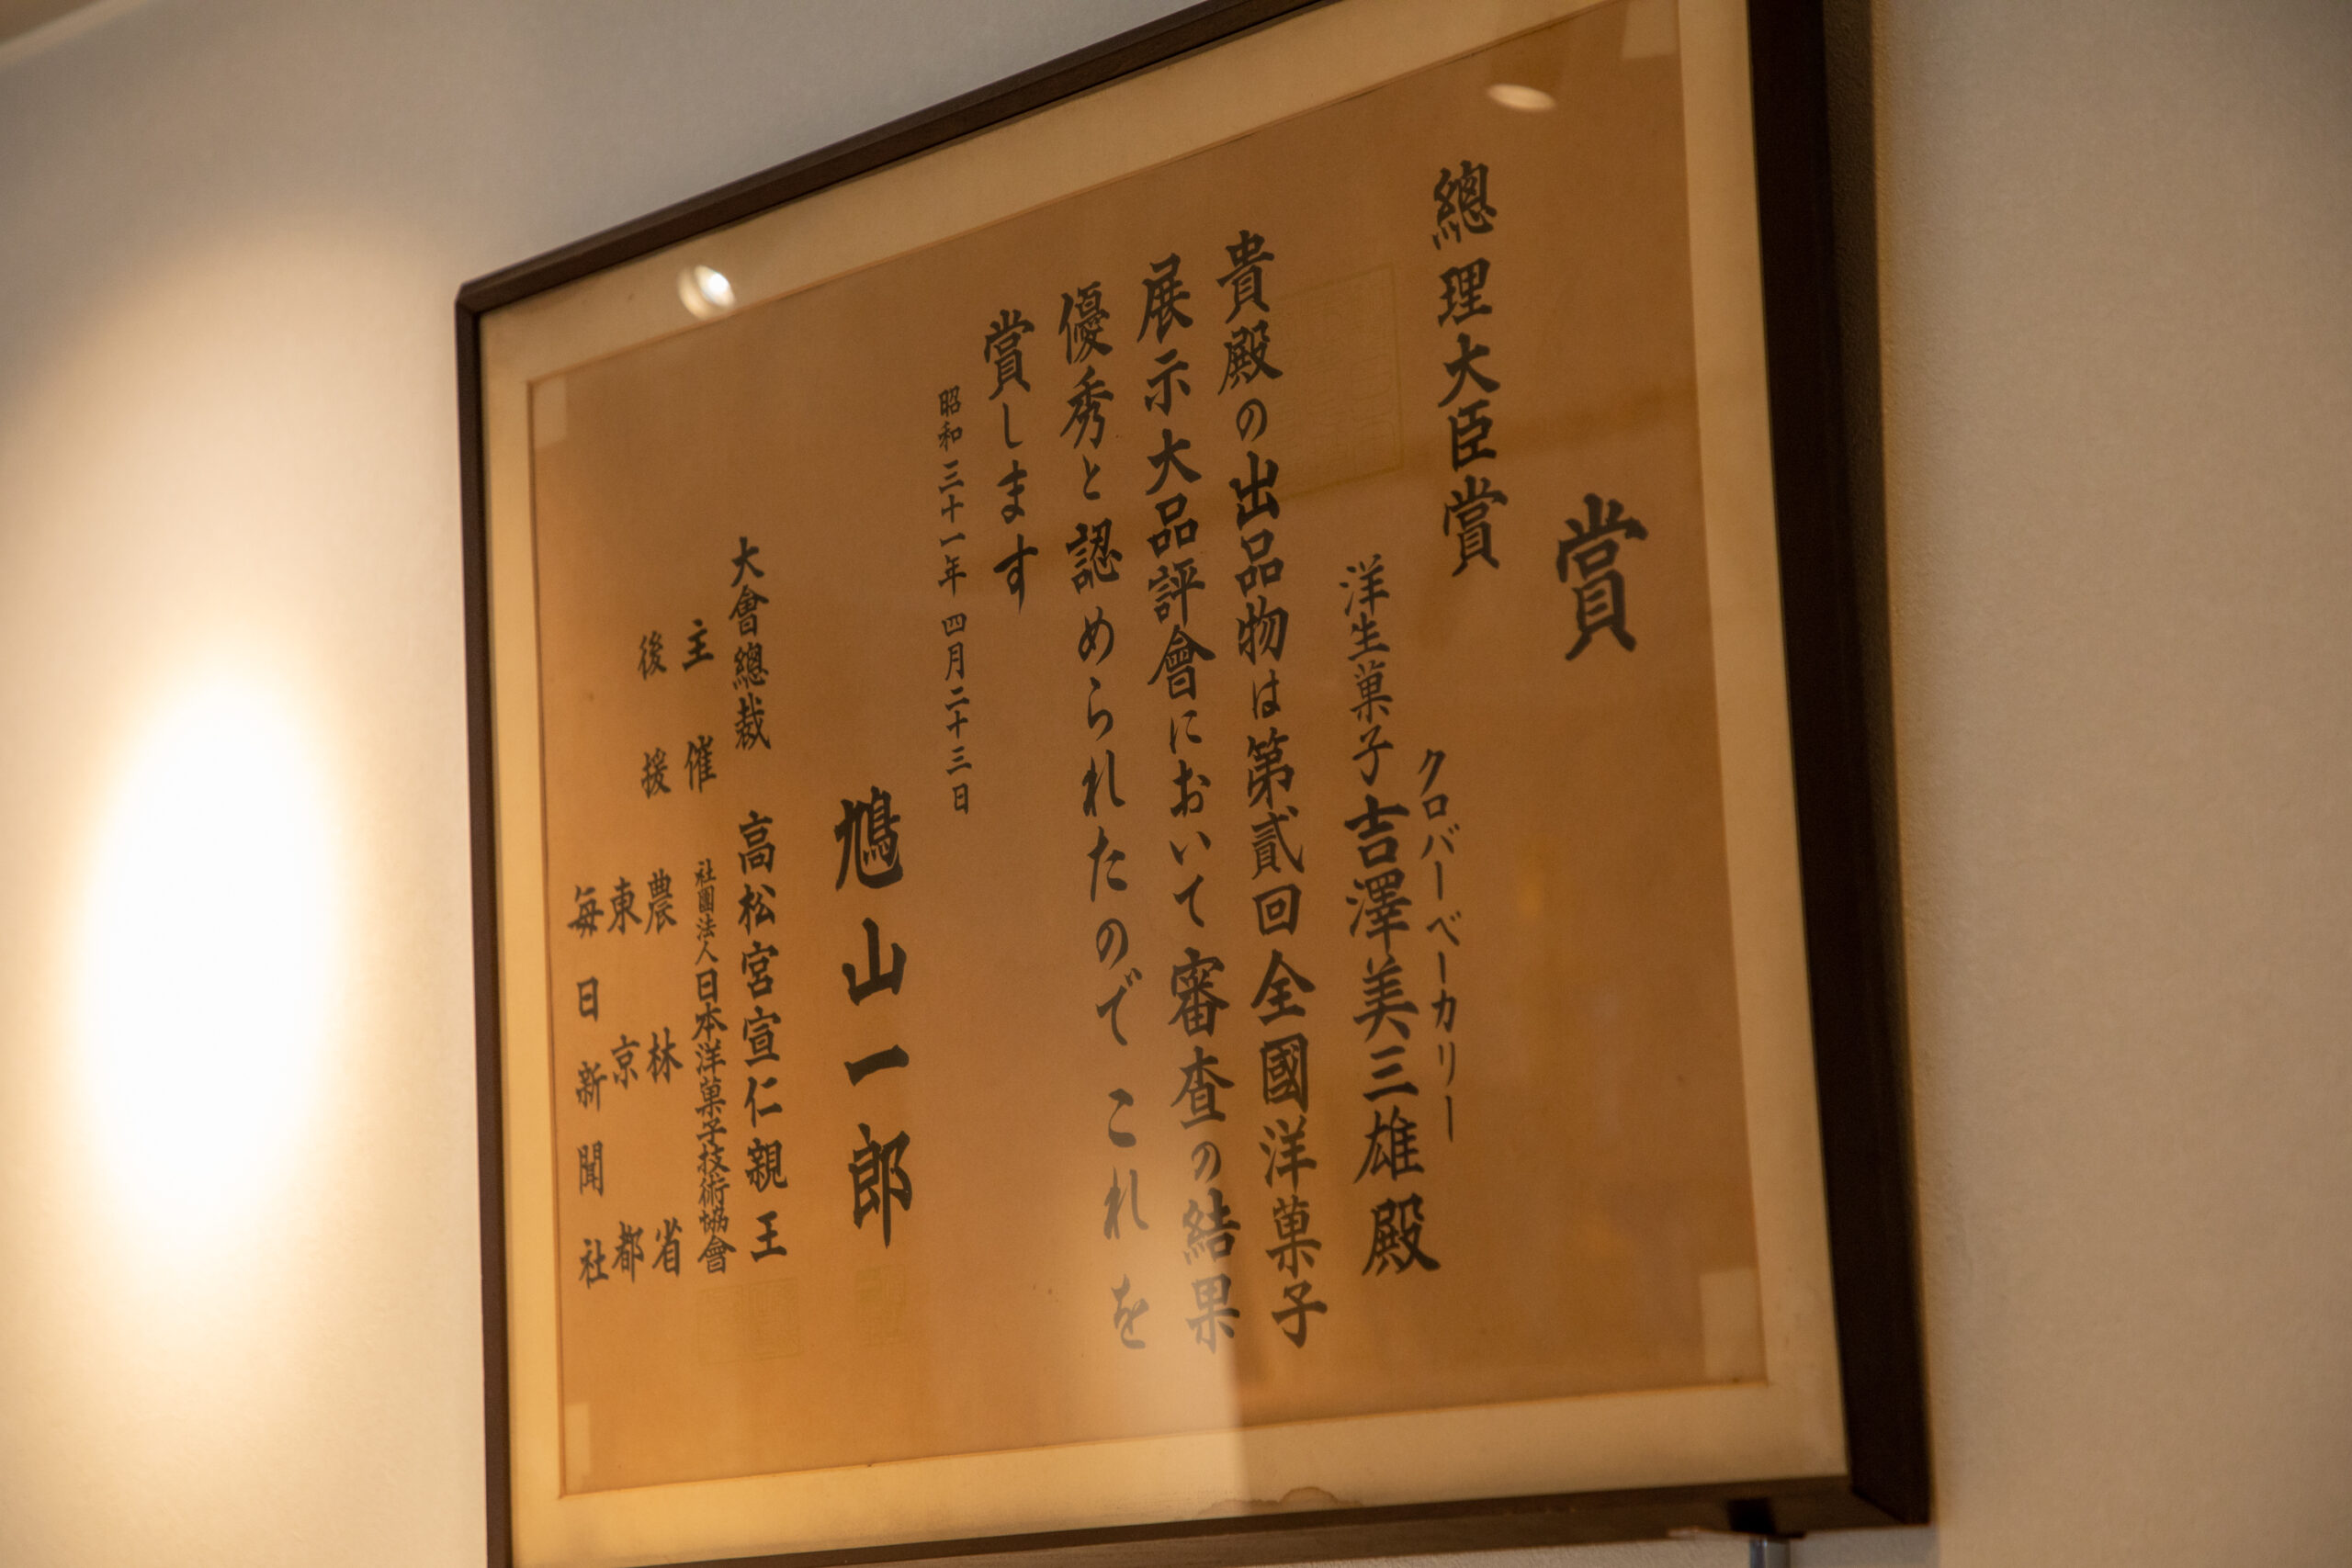 賞
總理大臣賞
クローバーベーカリー
洋生菓子 吉澤美三雄殿
貴殿の出品物は第貳回全國洋菓子
展示大品評會において審査の結果
優秀と認められたのでこれを
賞します
昭和三十一年四月二十三日
鳩山一郎
大會總裁 高松宮宣仁親王
主催 社團法人日本洋菓子技術協會
後援 農林省
東京都
毎日新聞社